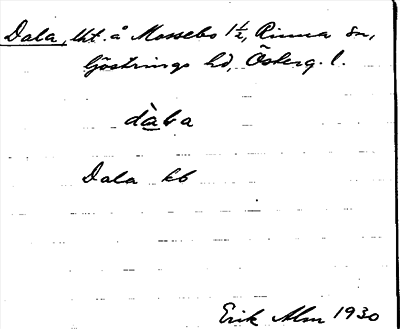 Dala, lht. å Mossebo 1½, Rinna sn,
Göstrings hd, Österg. l.
dàla
Dala kb
Erik Alm 1930